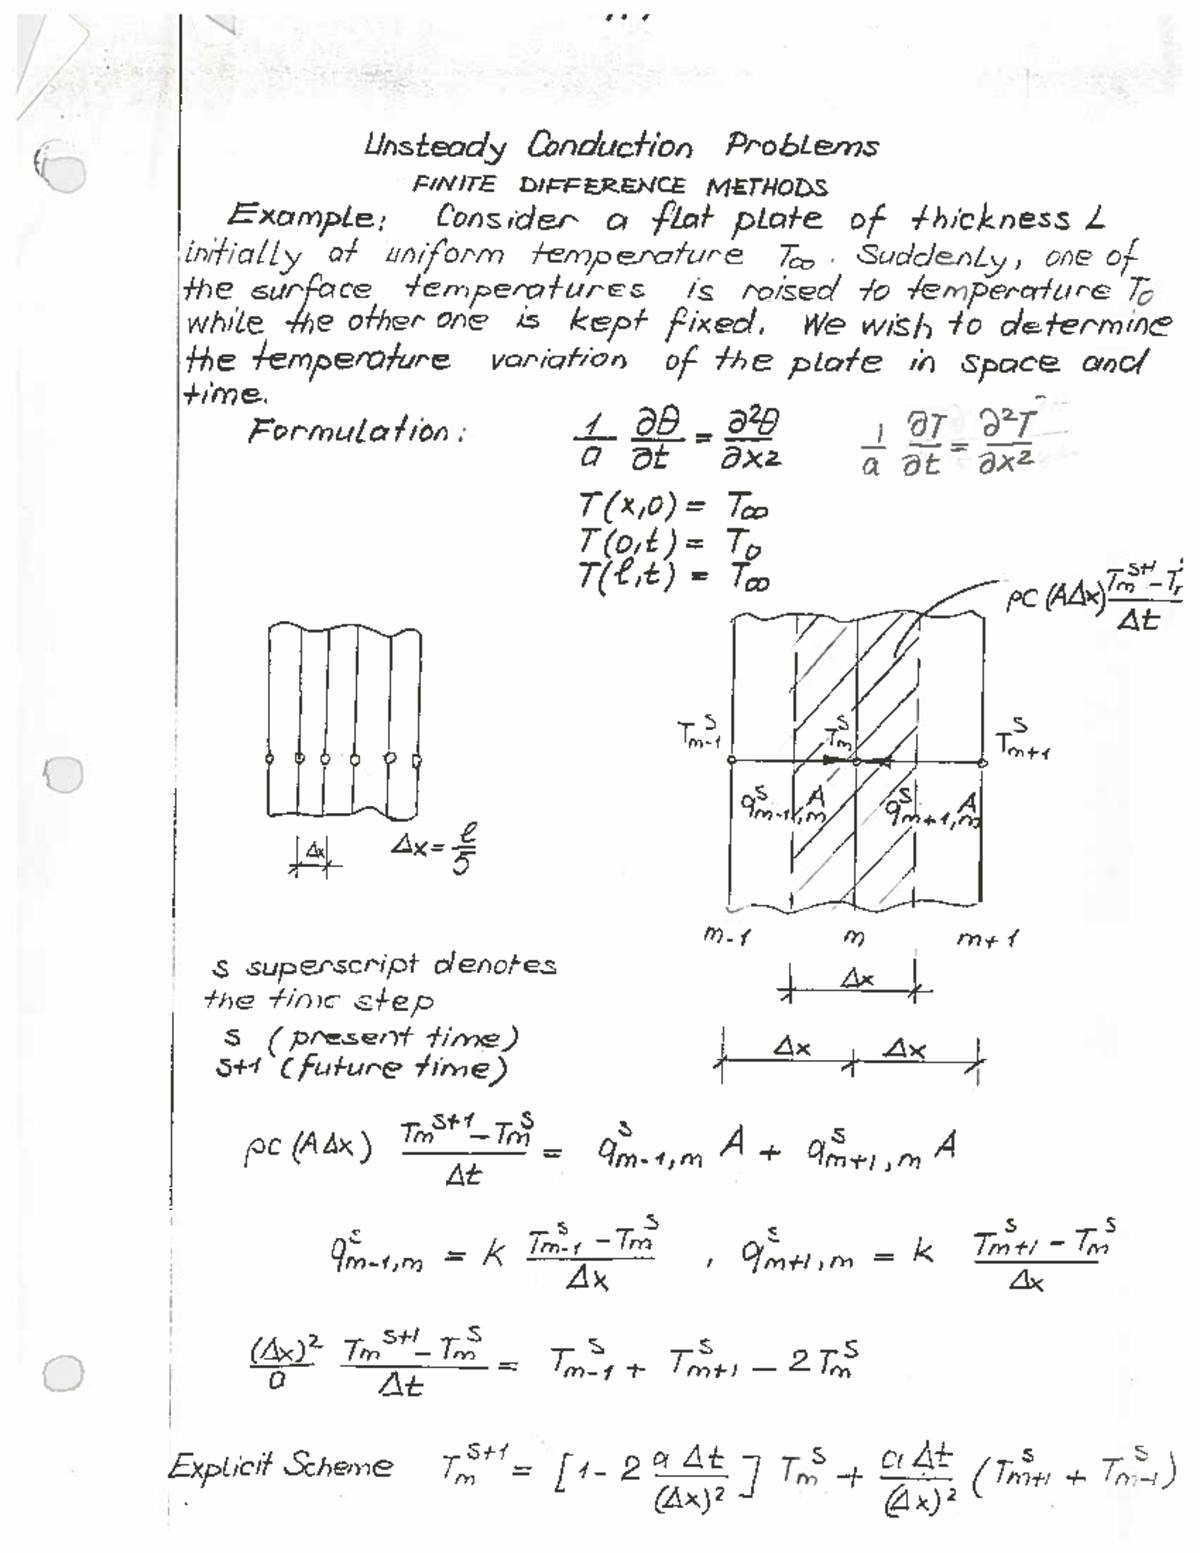 Unsteady Conduction Problems
FINITE DIFFERENCE METHODS
Example: Consider a flat plate of thickness L
initially at uniform temperature T∞. Suddenly, one of
the surface temperatures is raised to temperature T₀
while the other one is kept fixed. We wish to determine
the temperature variation of the plate in space and
time.
Formulation: 1/a ∂θ/∂t = ∂²θ/∂x² 1/a ∂T/∂t = ∂²T/∂x²
T(x,0) = T∞
T(0,t) = T₀
T(ℓ,t) = T∞
ρc (AΔx) (T_m^{s+1} - T
Δt
T_{m-1}^s T_m^s T_{m+1}^s
q_{m-1,m}^s A q_{m+1,m}^s A
Δx Δx = ℓ/5
m-1 m m+1
Δx
s superscript denotes
the time step
s (present time)
s+1 (future time)
Δx Δx
ρc (AΔx) (T_m^{s+1} - T_m^s)/Δt = q_{m-1,m}^s A + q_{m+1,m}^s A
q_{m-1,m}^s = k (T_{m-1}^s - T_m^s)/Δx , q_{m+1,m}^s = k (T_{m+1}^s - T_m^s)/Δx
(Δx)²/a (T_m^{s+1} - T_m^s)/Δt = T_{m-1}^s + T_{m+1}^s - 2T_m^s
Explicit Scheme T_m^{s+1} = [1 - 2 aΔt/(Δx)²] T_m^s + aΔt/(Δx)² (T_{m+1}^s + T_{m-1}^s)